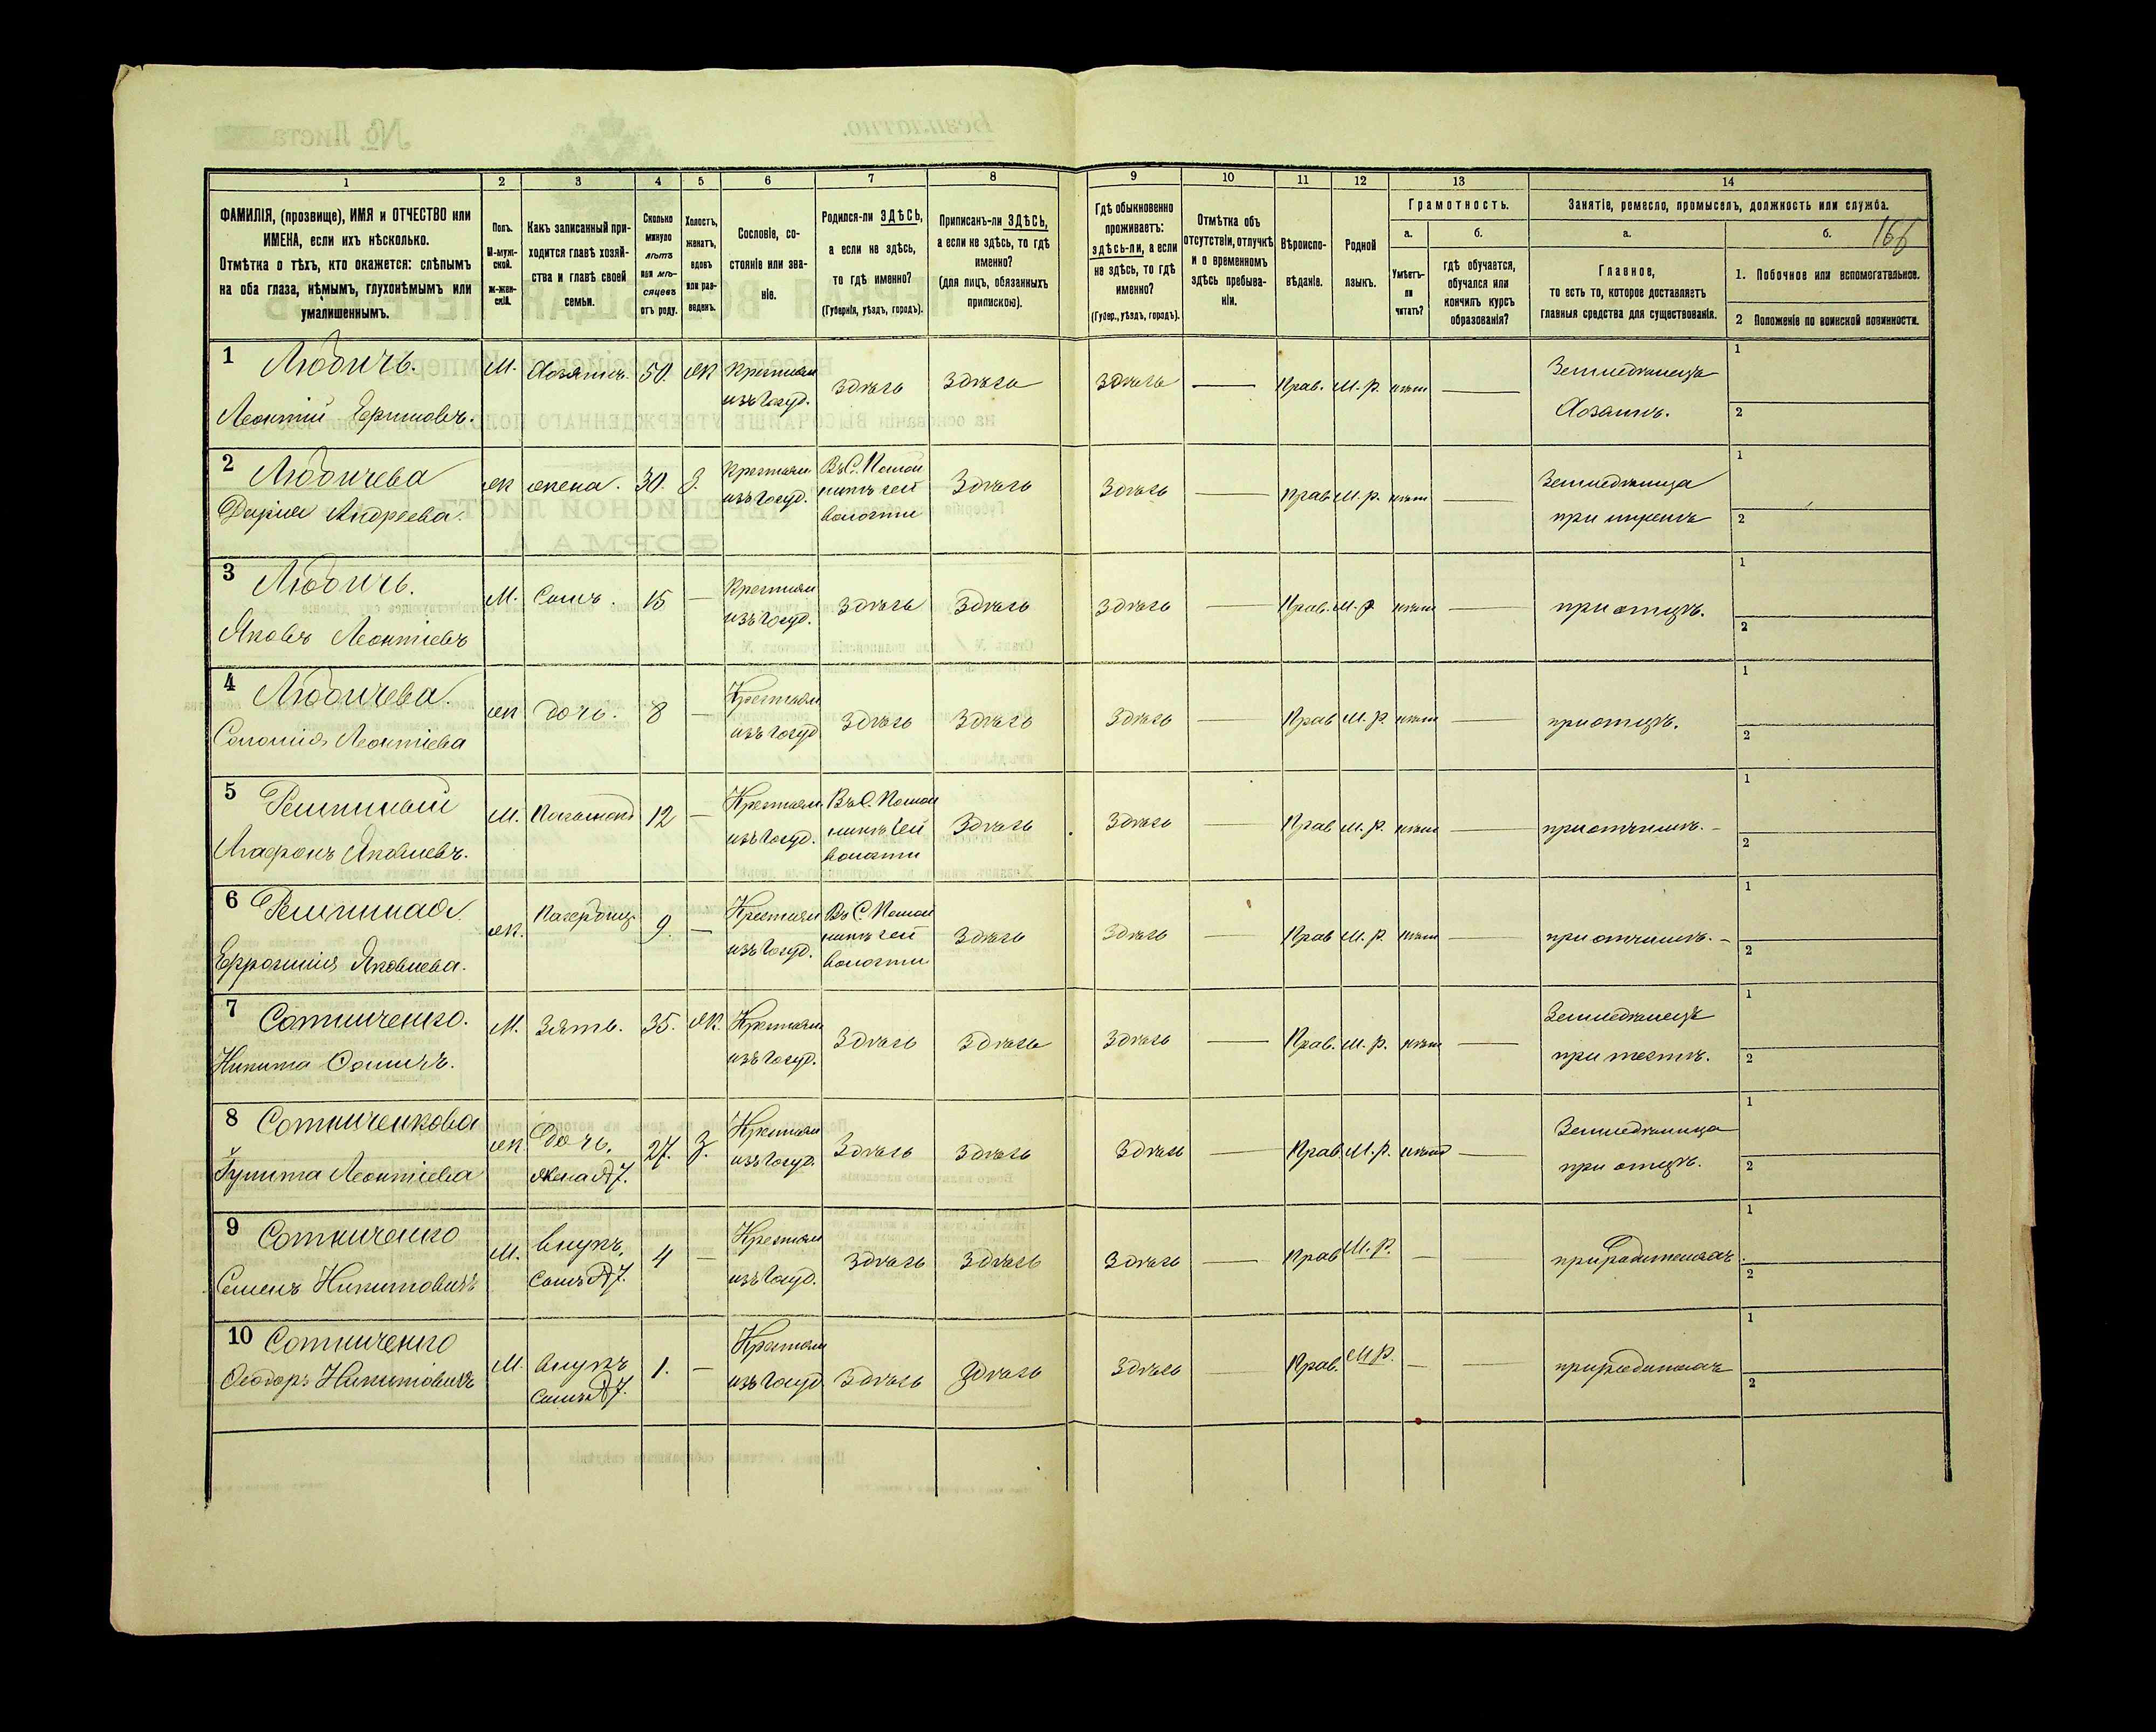 1 2 3 4 5 6 7 8 9 10 11 12 13 14
ФАМИЛІЯ, (прозвище), ИМЯ и ОТЧЕСТВО или
ИМЕНА, если ихъ нѣсколько.
Отмѣтка о тѣхъ, кто окажется: слѣпымъ
на оба глаза, нѣмымъ, глухонѣмымъ или
умалишеннымъ.
Полъ.
М-муж-
ской.
ж-жен-
скій.
Какъ записанный при-
ходится главѣ хозяй-
ства и главѣ своей
семьи.
Сколько
минуло
лѣтъ
или мѣ-
сяцевъ
отъ роду.
Холостъ,
женатъ,
вдовъ
или раз-
веденъ.
Сословіе, со-
стояніе или зва-
ніе.
Родился-ли ЗДѢСЬ,
а если не здѣсь,
то гдѣ именно?
(Губернія, уѣздъ, городъ).
Приписанъ-ли ЗДѢСЬ,
а если не здѣсь, то гдѣ
именно?
(для лицъ, обязанныхъ
припискою).
Гдѣ обыкновенно
проживаетъ:
здѣсь-ли, а если
не здѣсь, то гдѣ
именно?
(Губер., уѣздъ, городъ).
Отмѣтка объ
отсутствіи, отлучкѣ
и о временномъ
здѣсь пребыва-
ніи.
Вѣроиспо-
вѣданіе.
Родной
языкъ.
Грамотность.
а. б.
Умѣетъ-
ли
читать?
гдѣ обучается,
обучался или
кончилъ курсъ
образованія?
Занятіе, ремесло, промыселъ, должность или служба.
а. б. 166
Главное,
то есть то, которое доставляетъ
главныя средства для существованія.
1. Побочное или вспомогательное.
2 Положеніе по воинской повинности.
1 Любичъ. М. Хозяинъ. 50. Ж Крестьян здѣсь здѣсь здѣсь — Прав. М. р. нѣтъ — Земледѣлецъ 1
Леонтій Ефимовъ. изъ Госуд. Хозяинъ. 2
2 Любичева ж жена. 30. З. Крестьян Въ С. здѣсь здѣсь — Прав М. р. нѣтъ — Земледѣлица 1
Дарія Андреева. изъ Госуд. волости при мужѣ 2
3 Любичъ. М. Сынъ. 15 — Крестьян здѣсь здѣсь здѣсь — Прав. М. р нѣтъ — при отцѣ. 1
Яковъ Леонтіевъ изъ Госуд. 2
4 Любичева. ж дочь. 8 — Крестьян здѣсь здѣсь здѣсь — Прав М. р. нѣтъ — при отцѣ. 1
Соломія Леонтіева изъ Госуд 2
5 М. 12 — Крестьян. Въ С. здѣсь здѣсь — Прав М. р. нѣтъ — при отчимѣ. 1
Агафонъ Яковлевъ. изъ Госуд. волости 2
6 ж. 9. — Крестьян Въ С. здѣсь здѣсь — Прав М. р. нѣтъ — при отчимѣ. 1
Ефросинія Яковлева. изъ Госуд. волости 2
7 Сотниченко. М. Зять. 35. Ж. Крестьян здѣсь здѣсь здѣсь — Прав. М. р. нѣтъ — Земледѣлецъ 1
Никита изъ Госуд. при тестѣ. 2
8 Сотниченкова ж. Дочь, 27. З. Крестьян здѣсь здѣсь здѣсь — Прав М. р. нѣтъ — Земледѣлица 1
Леонтіева жена № 7. изъ Госуд. при отцѣ. 2
9 Сотниченко М. Внукъ, 4 — Крестьян здѣсь здѣсь здѣсь — Прав М. р. — — при родителяхъ 1
Семенъ Никитовичъ Сынъ № 7. изъ Госуд. 2
10 Сотниченко М. Внукъ 1. — Крестьян здѣсь здѣсь здѣсь — Прав. М р. — — при родителяхъ 1
Ѳеодоръ Никитовичъ Сынъ № 7. изъ Госуд 2